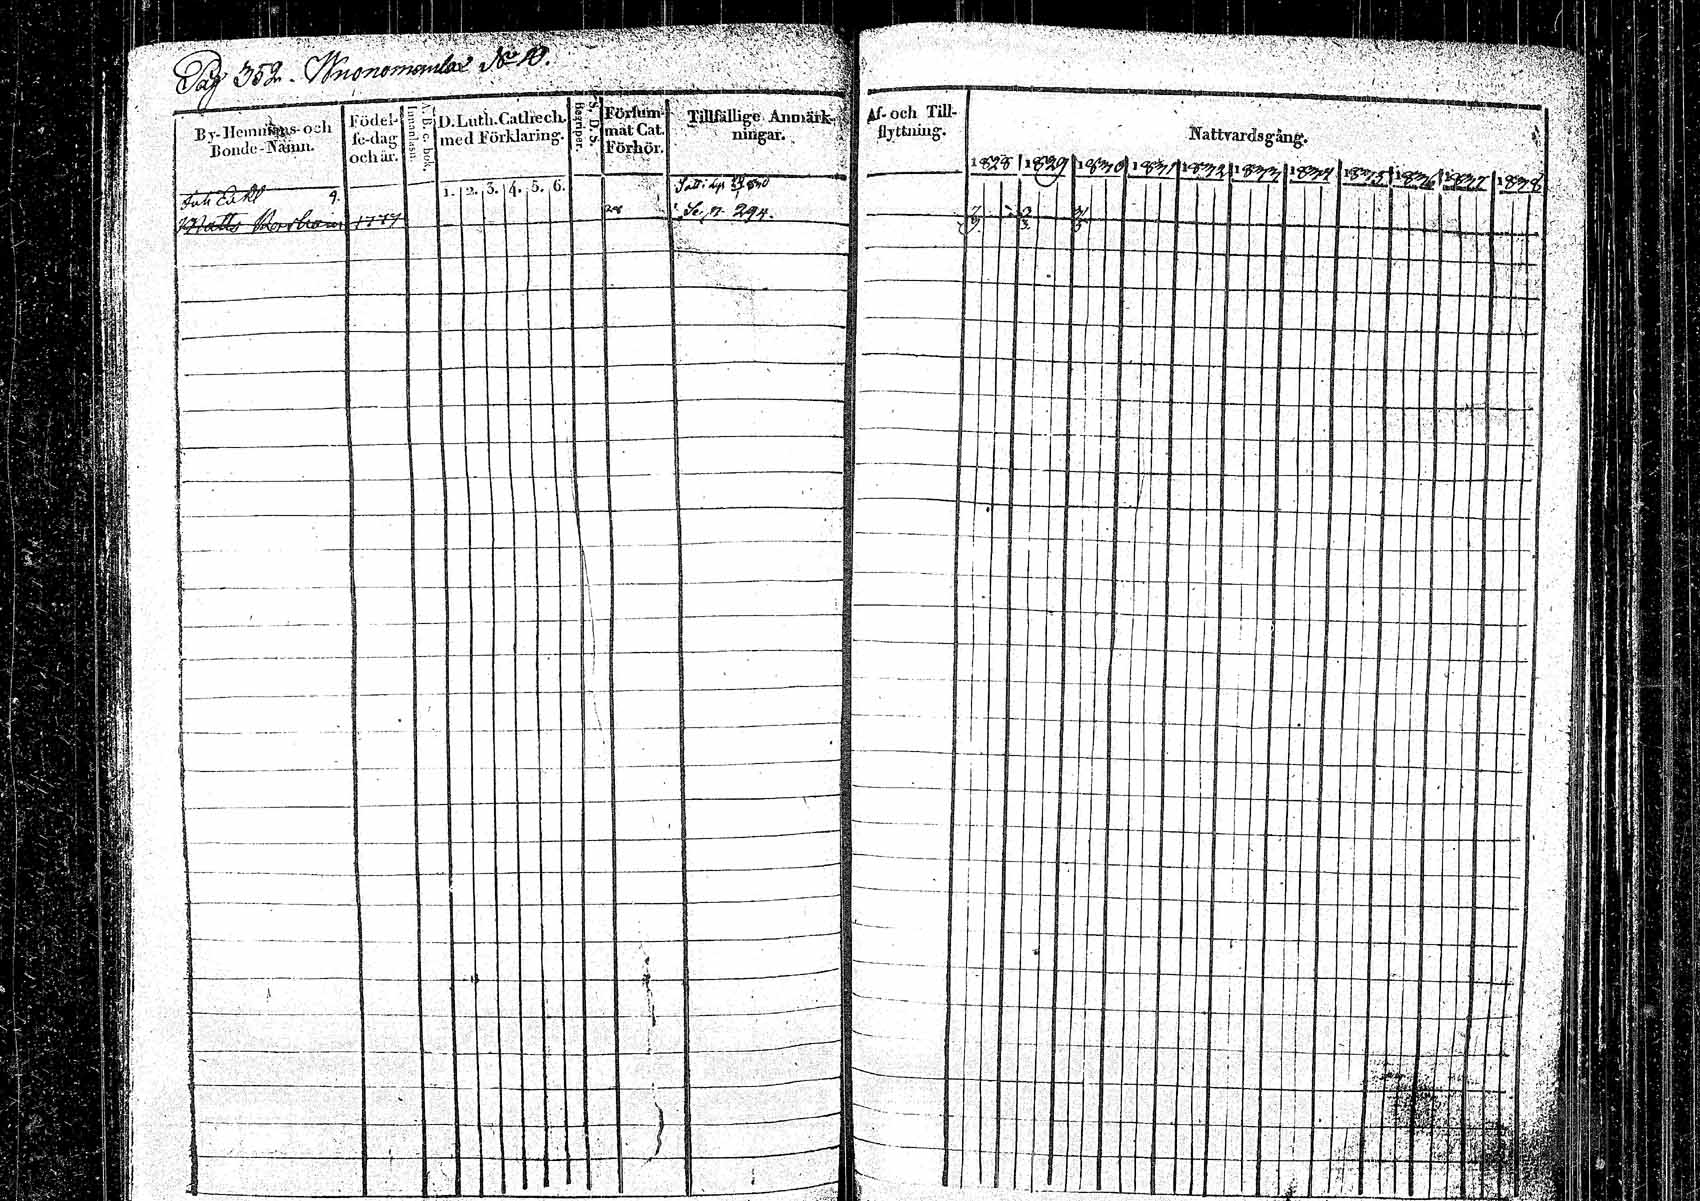 Pag 352. Wuonomaula № 10.
By-Hemmans-och
Bonde-Namn.
Födel-
se-dag
och år.
A. B. c. bok.
Innanläsn.
D. Luth. Cathech.
med Förklaring.
1. 2. 3. 4. 5. 6.
S. D. S.
Begriper.
Försum-
mat Cat.
Förhör.
Tillfällige Anmärk-
ningar.
Af- och Till-
flyttning.
Nattvardsgång.
1828 1829 1830 1831 1832 1833 1834 1835 1836 1837 1838
9.
Matts 1777 28 294.